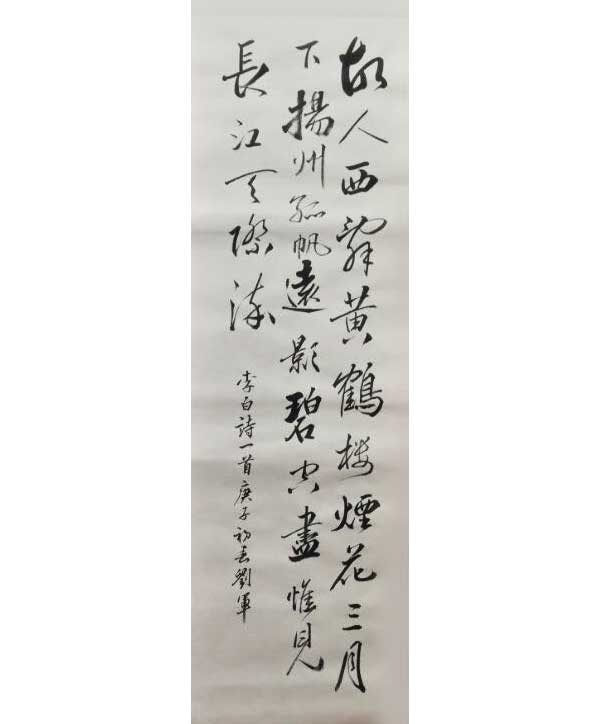 故人西辭黄鶴楼煙花三月
下揚州孤帆遠影碧空盡惟見
長江天際流
李白詩一首庚子初春劉軍